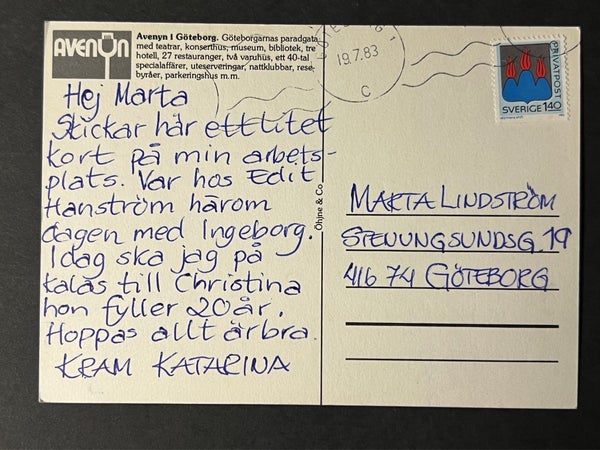 AVENYN
Avenyn i Göteborg. Göteborgarnas paradgata
med teatrar, konserthus, museum, bibliotek, tre
hotell, 27 restauranger, två varuhus, ett 40-tal
specialaffärer, uteserveringar, nattklubbar, rese-
byråer, parkeringshus m.m.
Hej Marta
Skickar här ett litet
kort på min arbets-
plats. Var hos Edit
Hanström härom
dagen med Ingeborg.
Idag ska jag på
kalas till Christina
hon fyller 20 år.
Hoppas allt är bra.
KRAM KATARINA
Öhjne & Co
19.7.83
C
PRIVATPOST
SVERIGE 1.40
MARTA LINDSTRÖM
STENUNGSUNDSG. 19
416 74 GÖTEBORG